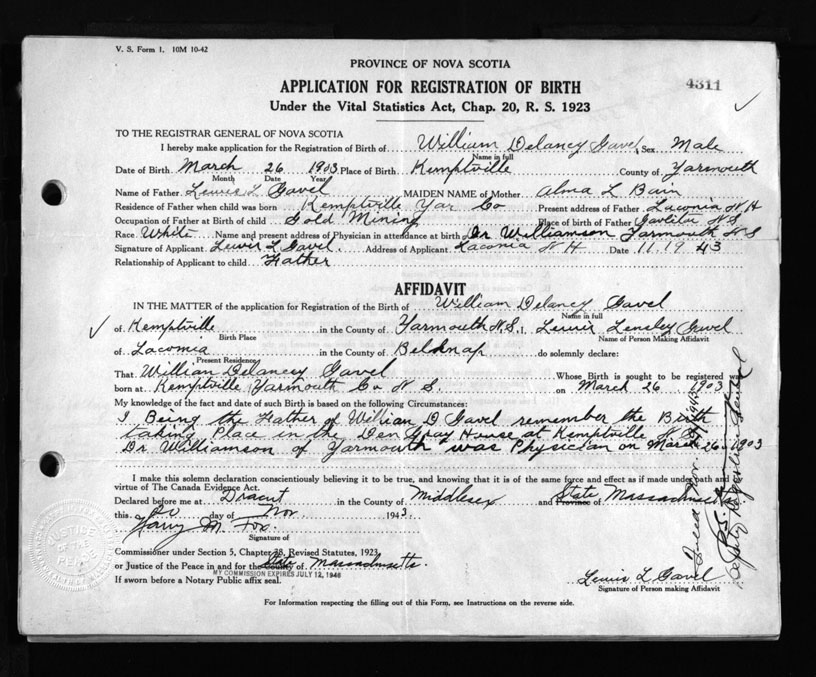 V. S. Form 1. 10M 10-42
PROVINCE OF NOVA SCOTIA
APPLICATION FOR REGISTRATION OF BIRTH
4311
Under the Vital Statistics Act, Chap. 20, R. S. 1923
TO THE REGISTRAR GENERAL OF NOVA SCOTIA
I hereby make application for the Registration of Birth of William Delaney Gavel Sex Male
Name in full
Date of Birth March 26 1903 Place of Birth Kemptville County of Yarmouth
Month Date Year
Name of Father Lewis L Gavel MAIDEN NAME of Mother Alma L Bain
Residence of Father when child was born Kemptville Yar Co Present address of Father Laconia N H
Occupation of Father at Birth of child Gold Mining Place of birth of Father N S
Race White Name and present address of Physician in attendance at birth Dr Williamson Yarmouth N S
Signature of Applicant Lewis L Gavel. Address of Applicant Laconia N H Date 11 19 43
Relationship of Applicant to child Father
AFFIDAVIT
IN THE MATTER of the application for Registration of the Birth of William Delaney Gavel
Name in full
of Kemptville in the County of Yarmouth N.S. I, Lewis Gavel
Birth Place Name of Person Making Affidavit
of Laconia in the County of Belknap do solemnly declare:
Present Residency
That William Delancey Gavel Whose Birth is sought to be registered was
born at Kemptville Yarmouth Co N S. on March 26 1903
My knowledge of the fact and date of such Birth is based on the following Circumstances:
I Being the Father of William D Gavel remember the Birth
taking Place in the Den Gray House at Kemptville N.S.
Dr Williamson of Yarmouth was Physician on March 26-1903
I make this solemn declaration conscientiously believing it to be true, and knowing that it is of the same force and effect as if made under oath and
virtue of The Canada Evidence Act.
Declared before me at Dracut in the County of Middlesex and State Province of Massachusetts
this 20 day of Nov. 1943.
Harry M Fox.
Signature of
Commissioner under Section 5, Chapter 38, Revised Statutes, 1923
or Justice of the Peace in and for the State County of Massachusetts.
MY COMMISSION EXPIRES JULY 12, 1946
If sworn before a Notary Public affix seal.
Lewis L Gavel
Signature of Person making Affidavit
For Information respecting the filling out of this Form, see Instructions on the reverse side.
JUSTICE OF THE PEACE
Deputy Registrar General